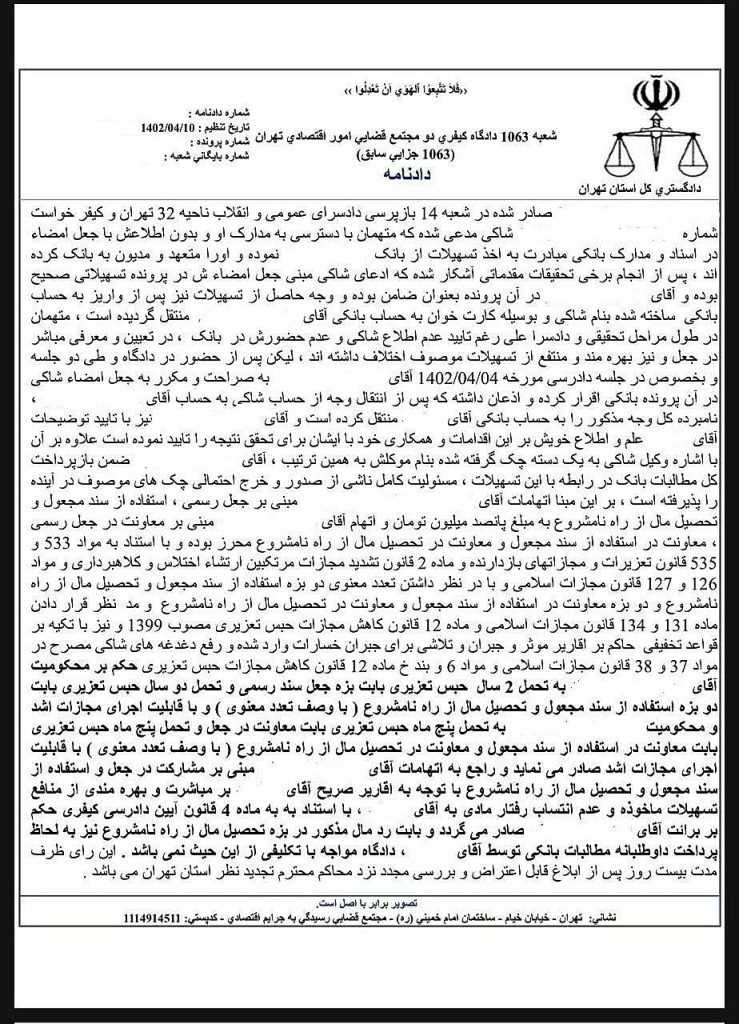 «فَلاَ تَتَّبِعُوا اَلْهَوَي أَنْ تَعْدِلُوا»
شماره دادنامه :
تاریخ تنظیم : 1402/04/10
شماره پرونده :
شماره بایگاني شعبه :
شعبه 1063 دادگاه کیفري دو مجتمع قضایي امور اقتصادي تهران
(1063 جزایي سابق)
دادنامه
دادگستري کل استان تهران
صادر شده در شعبه 14 بازپرسی دادسرای عمومی و انقلاب ناحیه 32 تهران و کیفر خواست
شماره شاکی مدعی شده که متهمان با دسترسی به مدارک او و بدون اطلاعش با جعل امضاء
در اسناد و مدارک بانکی مبادرت به اخذ تسهیلات از بانک نموده و اورا متعهد و مدیون به بانک کرده
اند ، پس از انجام برخی تحقیقات مقدماتی آشکار شده که ادعای شاکی مبنی جعل امضاء ش در پرونده تسهیلاتی صحیح
بوده و آقای در آن پرونده بعنوان ضامن بوده و وجه حاصل از تسهیلات نیز پس از واریز به حساب
بانکی ساخته شده بنام شاکی و بوسیله کارت خوان به حساب بانکی آقای منتقل گردیده است ، متهمان
در طول مراحل تحقیقی و دادسرا علی رغم تایید عدم اطلاع شاکی و عدم حضورش در بانک ، در تعیین و معرفی مباشر
در جعل و نیز بهره مند و منتفع از تسهیلات موصوف اختلاف داشته اند ، لیکن پس از حضور در دادگاه و طی دو جلسه
و بخصوص در جلسه دادرسی مورخه 1402/04/04 آقای به صراحت و مکرر به جعل امضاء شاکی
در آن پرونده بانکی اقرار کرده و اذعان داشته که پس از انتقال وجه از حساب شاکی به حساب آقای ،
نامبرده کل وجه مذکور را به حساب بانکی آقای منتقل کرده است و آقای نیز با تایید توضیحات
آقای علم و اطلاع خویش بر این اقدامات و همکاری خود با ایشان برای تحقق نتیجه را تایید نموده است علاوه بر آن
با اشاره وکیل شاکی به یک دسته چک گرفته شده بنام موکلش به همین ترتیب ، آقای ضمن بازپرداخت
کل مطالبات بانک در رابطه با این تسهیلات ، مسئولیت کامل ناشی از صدور و خرج احتمالی چک های موصوف در آینده
را پذیرفته است ، بر این مبنا اتهامات آقای مبنی بر جعل رسمی ، استفاده از سند مجعول و
تحصیل مال از راه نامشروع به مبلغ پانصد میلیون تومان و اتهام آقای مبنی بر معاونت در جعل رسمی
، معاونت در استفاده از سند مجعول و معاونت در تحصیل مال از راه نامشروع محرز بوده و با استناد به مواد 533 و
535 قانون تعزیرات و مجازاتهای بازدارنده و ماده 2 قانون تشدید مجازات مرتکبین ارتشاء اختلاس و کلاهبرداری و مواد
126 و 127 قانون مجازات اسلامی و با در نظر داشتن تعدد معنوی دو بزه استفاده از سند مجعول و تحصیل مال از راه
نامشروع و دو بزه معاونت در استفاده از سند مجعول و معاونت در تحصیل مال از راه نامشروع و مد نظر قرار دادن
ماده 131 و 134 قانون مجازات اسلامی و ماده 12 قانون کاهش مجازات حبس تعزیری مصوب 1399 و نیز با تکیه بر
قواعد تخفیفی حاکم بر اقاریر موثر و جبران و تلاشی برای جبران خسارات وارد شده و رفع دغدغه های شاکی مصرح در
مواد 37 و 38 قانون مجازات اسلامی و مواد 6 و بند خ ماده 12 قانون کاهش مجازات حبس تعزیری حکم بر محکومیت
آقای به تحمل 2 سال حبس تعزیری بابت بزه جعل سند رسمی و تحمل دو سال حبس تعزیری بابت
دو بزه استفاده از سند مجعول و تحصیل مال از راه نامشروع ( با وصف تعدد معنوی ) و با قابلیت اجرای مجازات اشد
و محکومیت به تحمل پنج ماه حبس تعزیری بابت معاونت در جعل و تحمل پنج ماه حبس تعزیری
بابت معاونت در استفاده از سند مجعول و معاونت در تحصیل مال از راه نامشروع ( با وصف تعدد معنوی ) با قابلیت
اجرای مجازات اشد صادر می نماید و راجع به اتهامات آقای مبنی بر مشارکت در جعل و استفاده از
سند مجعول و تحصیل مال از راه نامشروع با توجه به اقاریر صریح آقای بر مباشرت و بهره مندی از منافع
تسهیلات ماخوذه و عدم انتساب رفتار مادی به آقای ، با استناد به به ماده 4 قانون آیین دادرسی کیفری حکم
بر برائت آقای صادر می گردد و بابت رد مال مذکور در بزه تحصیل مال از راه نامشروع نیز به لحاظ
پرداخت داوطلبانه مطالبات بانکی توسط آقای ، دادگاه مواجه با تکلیفی از این حیث نمی باشد . این رای ظرف
مدت بیست روز پس از ابلاغ قابل اعتراض و بررسی مجدد نزد محاکم محترم تجدید نظر استان تهران می باشد .
تصویر برابر با اصل است.
نشاني: تهران - خیابان خیام - ساختمان امام خمیني (ره) - مجتمع قضایي رسیدگي به جرایم اقتصادي - کدپستي: 1114914511